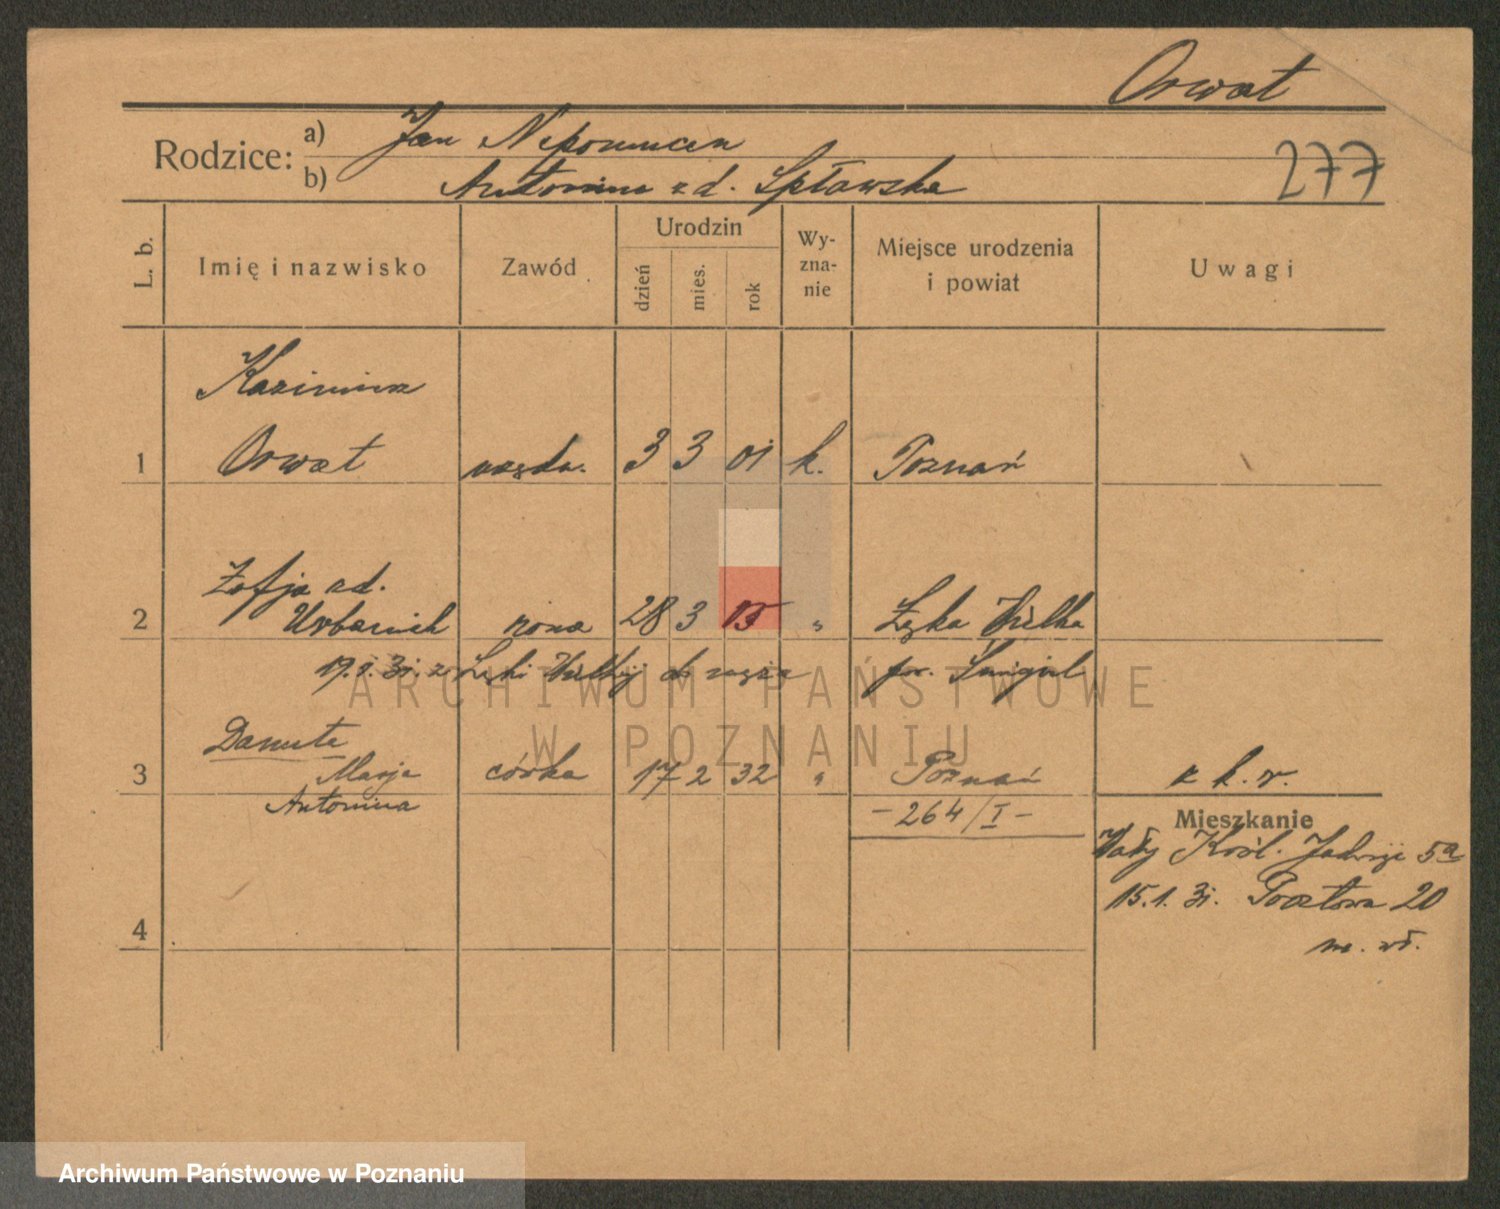 Orwat
Rodzice: a) Jan Nepomucen
b) Antonina z d. Spławska
277
L. b.
Imię i nazwisko
Zawód
Urodzin
dzień
mies.
rok
Wy-
zna-
nie
Miejsce urodzenia
i powiat
Uwagi
Kazimierz
1 Orwat urzędn. 3 3 01 k. Poznań
Zofja zd.
2 Urbanick żona 28 3 15 " Łęka Wielka
19.I.31. z Łęki Wielkiej do męża pow. Śmigiel
Danuta
3 Marja córka 17 2 32 " Poznań z k. r.
Antonina
- 264/I -
Mieszkanie
Wały Król. Jadwigi 5a
15.1.31. Pocztowa 20
4
ARCHIWUM PAŃSTWOWE
W POZNANIU
Archiwum Państwowe w Poznaniu